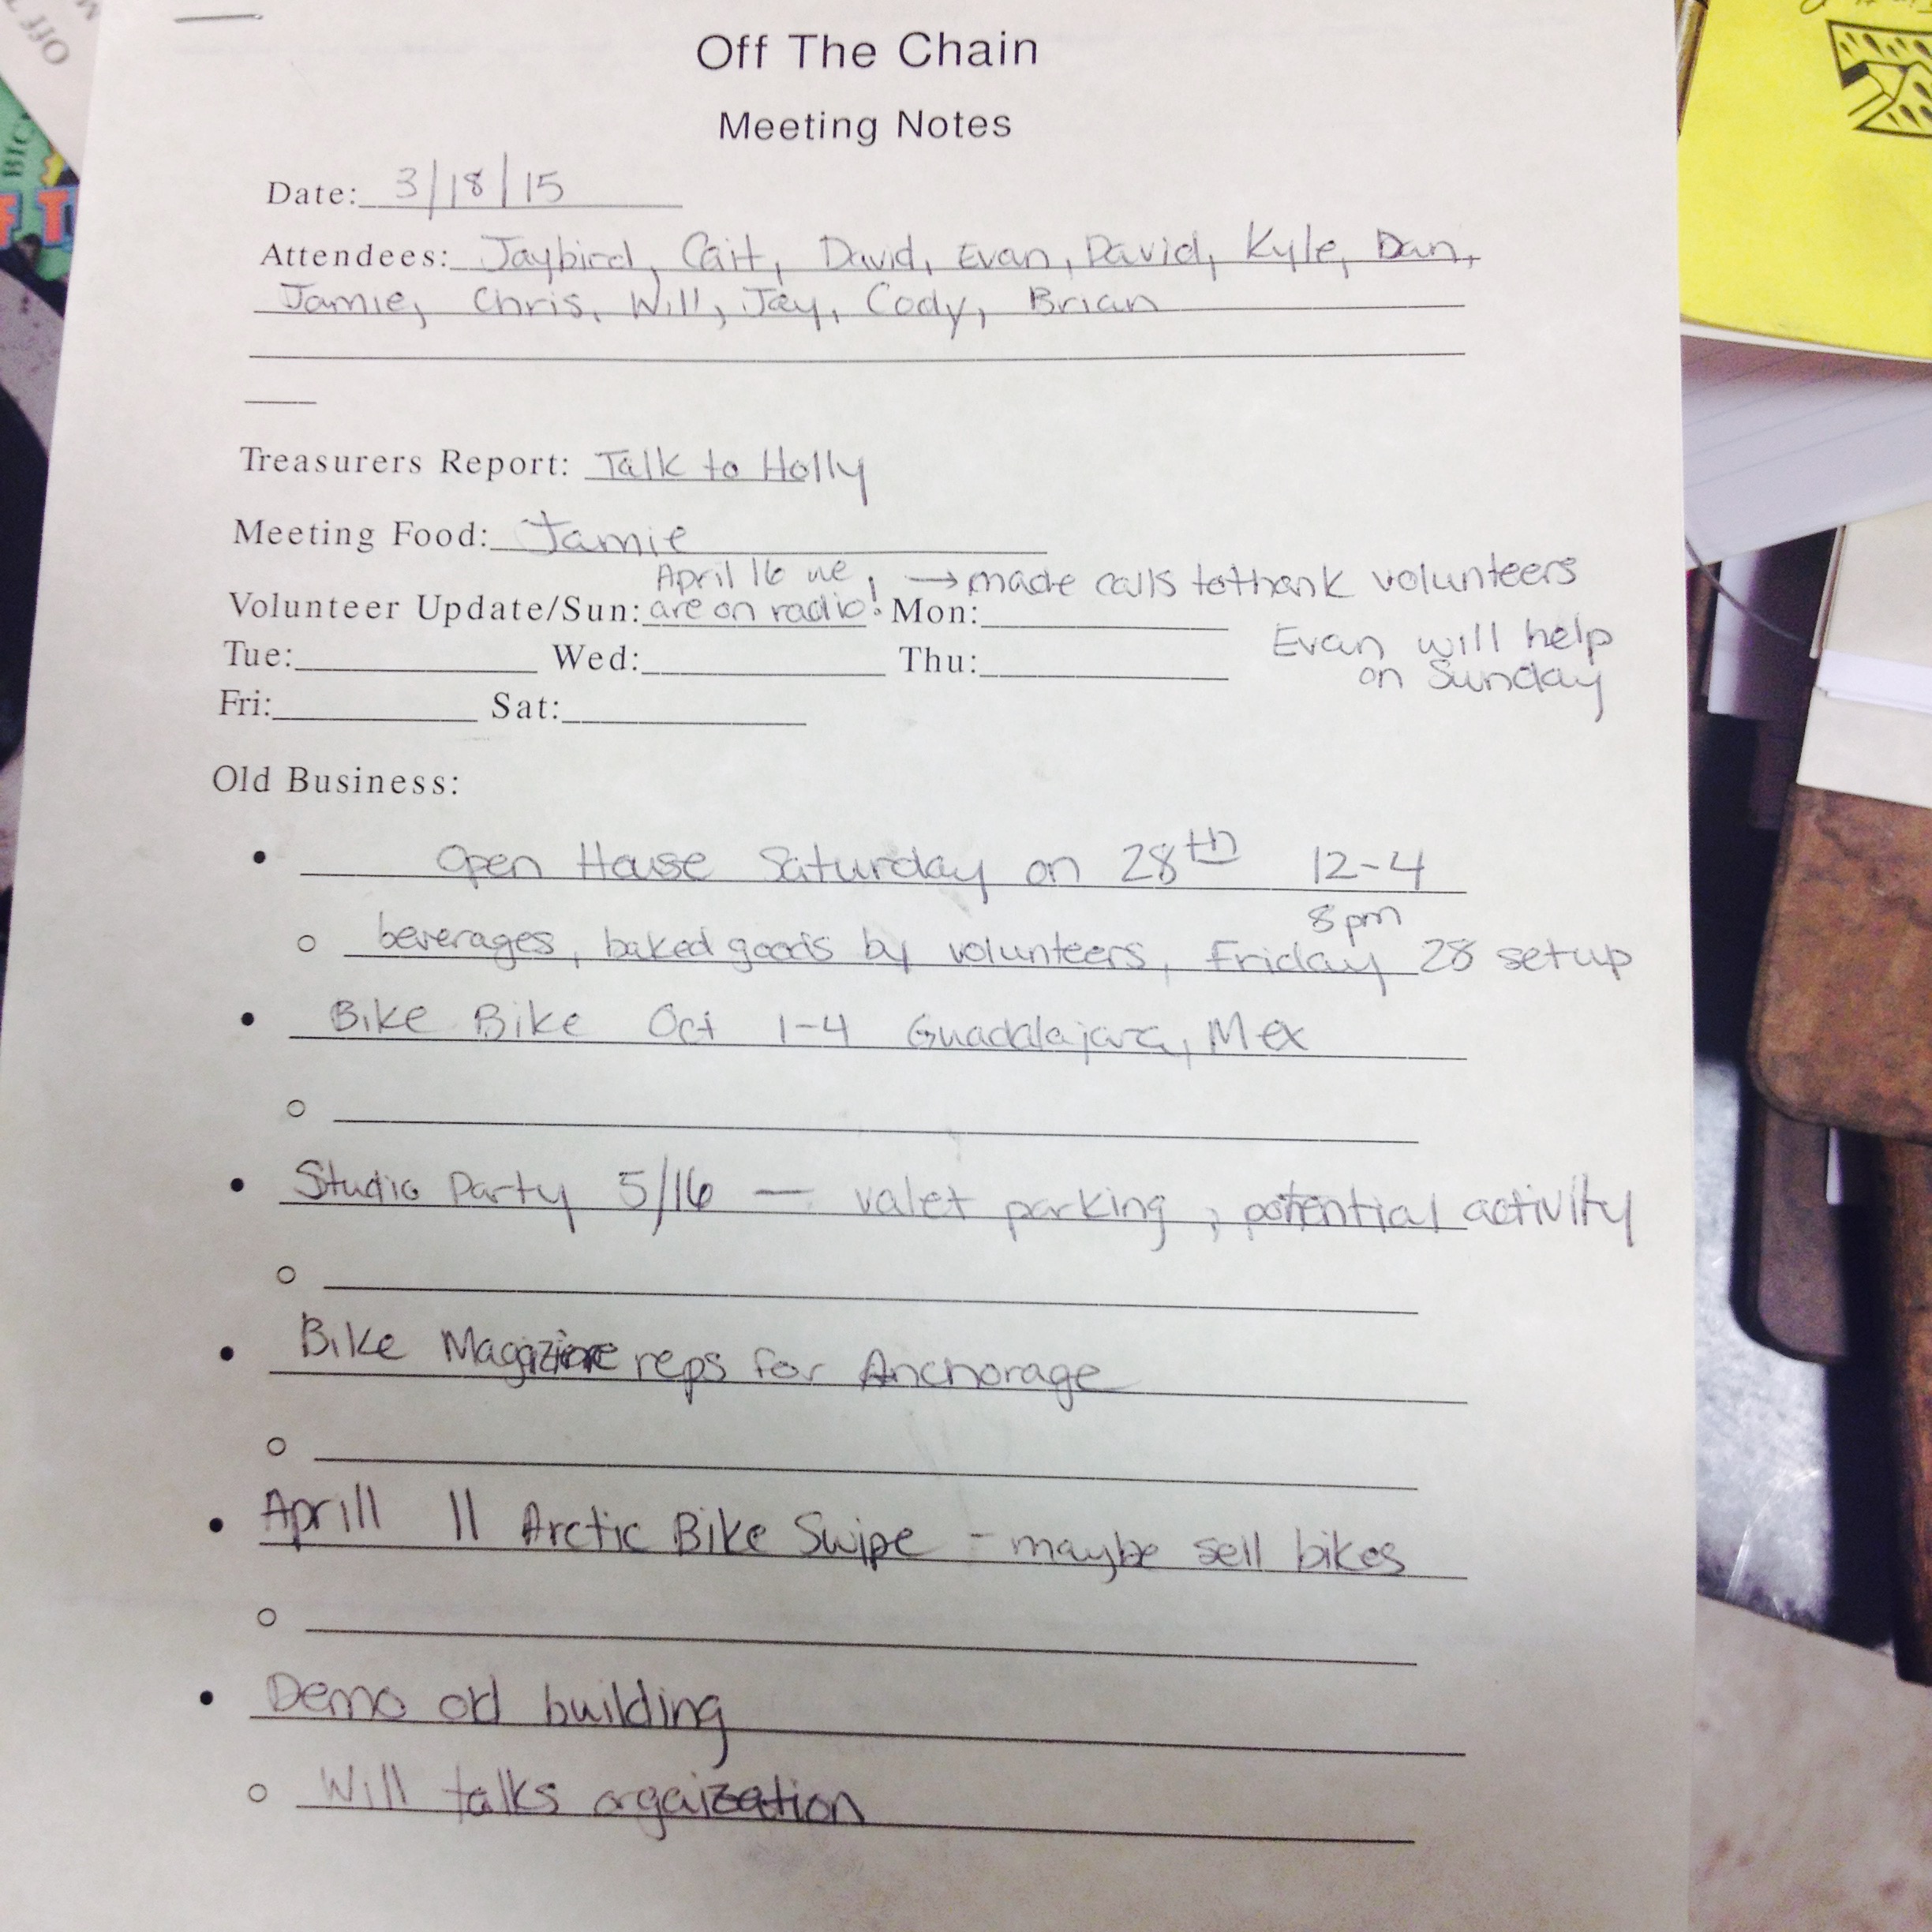 Off The Chain
Meeting Notes
Date: 3/18/15
Attendees: Jaybird, Cait, David, Evan, David, Kyle, Dan,
Jamie, Chris, Will, Jay, Cody, Brian
Treasurers Report: Talk to Holly
Meeting Food: Jamie
April 16 we → made calls to thank volunteers
Volunteer Update/Sun: are on radio! Mon:
Evan will help
Tue: Wed: Thu:
on Sunday
Fri: Sat:
Old Business:
• Open House Saturday on 28th 12-4
8pm
○ beverages, baked goods by volunteers, Friday 28 setup
• Bike Bike Oct 1-4 Guadalajara, Mex
○
• Studio Party 5/16 — valet parking, potential activity
○
• Bike Magazine reps for Anchorage
○
• Aprill 11 Arctic Bike Swipe - maybe sell bikes
○
• Demo old building
○ Will talks orgaization